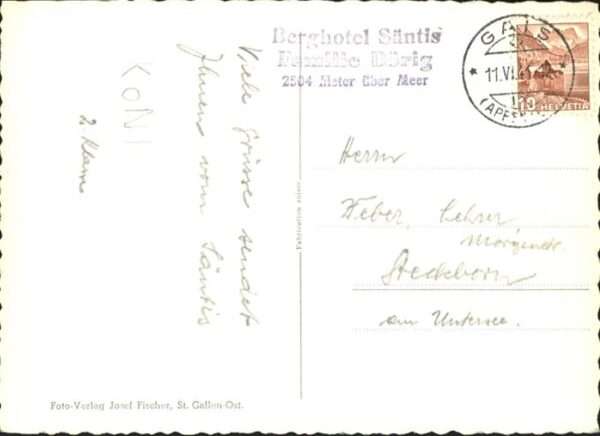 Berghotel Säntis
Familie Dörig
2504 Meter über Meer
GAIS
11.VI.
(APPE
10 HELVETIA
Viele Grüsse sendet
Ihnen vom Säntis
KONI
2. Klasse
Herrn
Weber, Lehrer,
Morgenstr.
Steckborn
am Untersee.
Foto-Verlag Josef Fischer, St. Gallen-Ost.